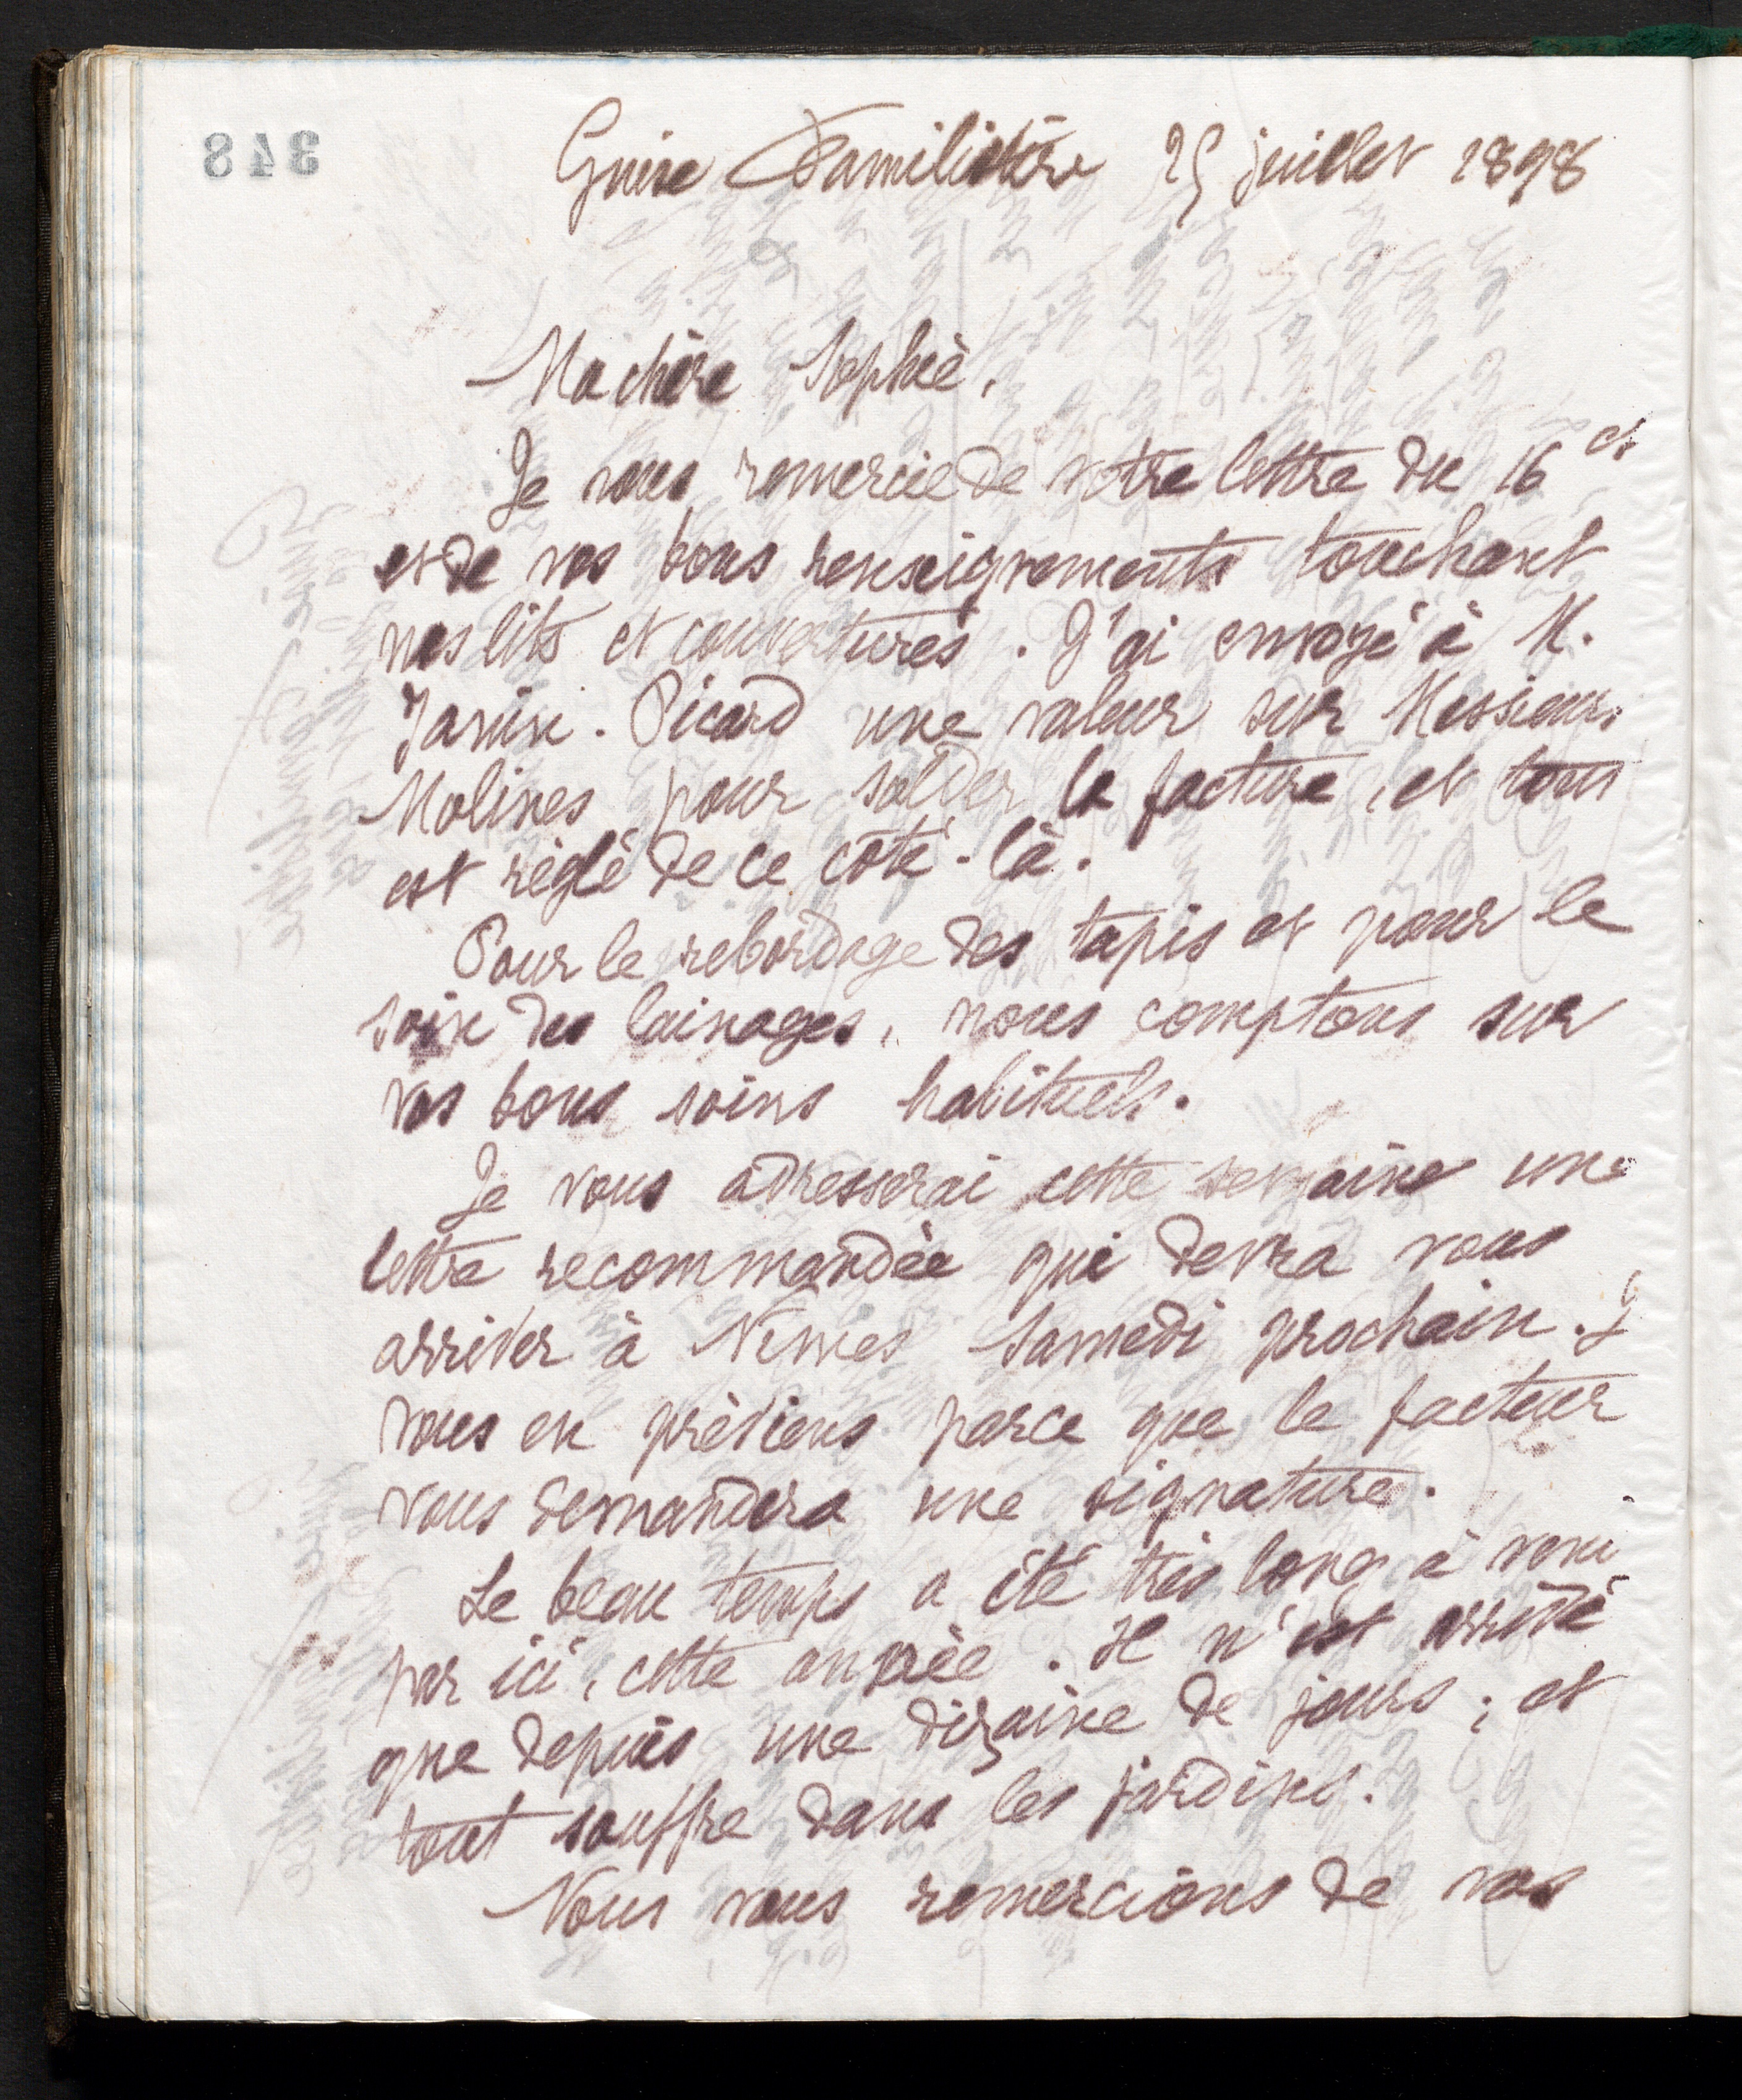 348
Guise Familistère 25 juillet 1898
Ma chère Sophie,
Je vous remercie de votre lettre du 16 ct
et de vos bons renseignements touchant
nos lits et couvertures. J'ai envoyé à M.
Janin-Picard une valeur sur Messieurs
Molines pour solder la facture, et tout
est réglé de ce côté-là.
Pour le rebordage des tapis et pour le
soin des lainages, nous comptons sur
vos bons soins habituels.
Je vous adresserai cette semaine une
lettre recommandée qui devra vous
arriver à Nimes Samedi prochain. J
vous en préviens parce que le facteur
vous demandera une signature.
Le beau temps a été très long à veni
par ici, cette année. Il n'est arrivé
que depuis une dizaine de jours; et
tout souffre dans les jardins.
Nous vous remercions de vos